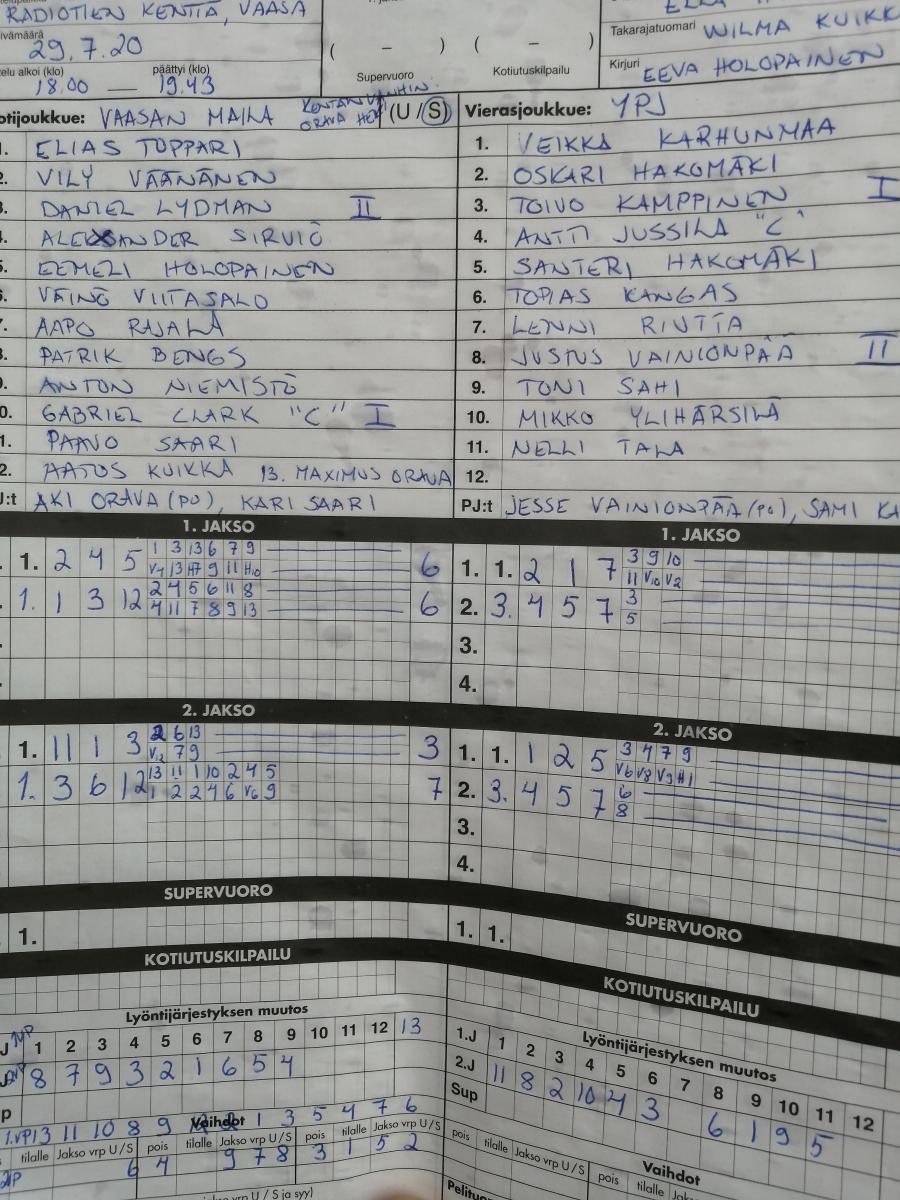 RADIOTIEN KENTTÄ, VAASA
29.7.20
( – ) ( – )
Takarajatuomari WILMA KUIKK
Kirjuri EEVA HOLOPAINEN
telu alkoi (klo) päättyi (klo)
18.00 — 19.43
Supervuoro Kotiutuskilpailu
otijoukkue: VAASAN MAILA (U/S)
Vierasjoukkue: YPJ
1. ELIAS TOPPARI
2. VILY VÄÄNÄNEN
3. DANIEL LYDMAN II
4. ALEXANDER SIRVIÖ
5. EEMELI HOLOPAINEN
6. VÄINÖ VIITASALO
7. AAPO RAJALA
8. PATRIK BENGS
9. ANTON NIEMISTÖ
10. GABRIEL CLARK "C" I
11. PAAVO SAARI
12. AATOS KUIKKA 13. MAXIMUS ORAVA
J:t AKI ORAVA (PO), KARI SAARI
1. VEIKKA KARHUNMAA
2. OSKARI HAKOMÄKI
3. TOIVO KAMPPINEN I
4. ANTTI JUSSILA "C"
5. SANTERI HAKOMÄKI
6. TOPIAS KANGAS
7. LENNI RINTTA
8. JUSTUS VAINIONPÄÄ II
9. TONI SAHI
10. MIKKO YLIHÄRSILÄ
11. NELLI TALA
12.
PJ:t JESSE VAINIONPÄÄ (PO), SAMI KA
1. JAKSO
1. 2 4 5 1 3 13 6 7 9 6
1. 1 3 12 2 4 5 6 11 8 6
4 11 7 8 9 13
1. JAKSO
1. 1. 2 1 7 3 9 10
11 V10 V2
2. 3. 4 5 7 3
5
3.
4.
2. JAKSO
1. 11 1 3 2 6 13 3
V12 7 9
1. 3 6 12 13 11 1 10 2 4 5 7
1 2 2 4 6 V6 9
2. JAKSO
1. 1. 1 2 5 3 4 7 9
V6 V8 V9 H1
2. 3. 4 5 7 6
8
3.
4.
SUPERVUORO
1.
SUPERVUORO
1. 1.
KOTIUTUSKILPAILU
KOTIUTUSKILPAILU
Lyöntijärjestyksen muutos
1 2 3 4 5 6 7 8 9 10 11 12 13
8 7 9 3 2 1 6 5 4
Vaihdot
tilalle Jakso vrp U/S pois tilalle Jakso vrp U/S pois tilalle Jakso vrp U/S
6 4 9 7 8 3 1 5 2
Lyöntijärjestyksen muutos
1.J 1 2 3 4 5 6 7 8 9 10 11 12
2.J 11 8 2 10 4 3 6 1 9 5
Sup
Vaihdot
pois tilalle Jakso vrp U/S pois tilalle